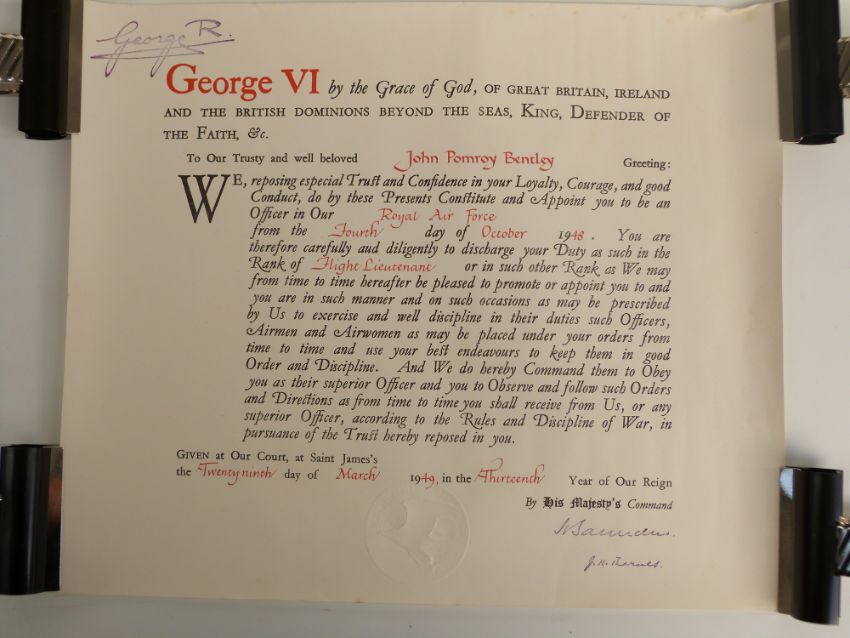 George R.
George VI by the Grace of God, OF GREAT BRITAIN, IRELAND
AND THE BRITISH DOMINIONS BEYOND THE SEAS, KING, DEFENDER OF
THE FAITH, &c.
To Our Trusty and well beloved John Pomroy Bentley Greeting:
WE, reposing especial Trust and Confidence in your Loyalty, Courage, and good
Conduct, do by these Presents Constitute and Appoint you to be an
Officer in Our Royal Air Force
from the Fourth day of October 1948. You are
therefore carefully and diligently to discharge your Duty as such in the
Rank of Flight Lieutenant or in such other Rank as We may
from time to time hereafter be pleased to promote or appoint you to and
you are in such manner and on such occasions as may be prescribed
by Us to exercise and well discipline in their duties such Officers,
Airmen and Airwomen as may be placed under your orders from
time to time and use your best endeavours to keep them in good
Order and Discipline. And We do hereby Command them to Obey
you as their superior Officer and you to Observe and follow such Orders
and Directions as from time to time you shall receive from Us, or any
superior Officer, according to the Rules and Discipline of War, in
pursuance of the Trust hereby reposed in you.
GIVEN at Our Court, at Saint James's
the Twenty ninth day of March 1949, in the Thirteenth Year of Our Reign
By His Majesty's Command